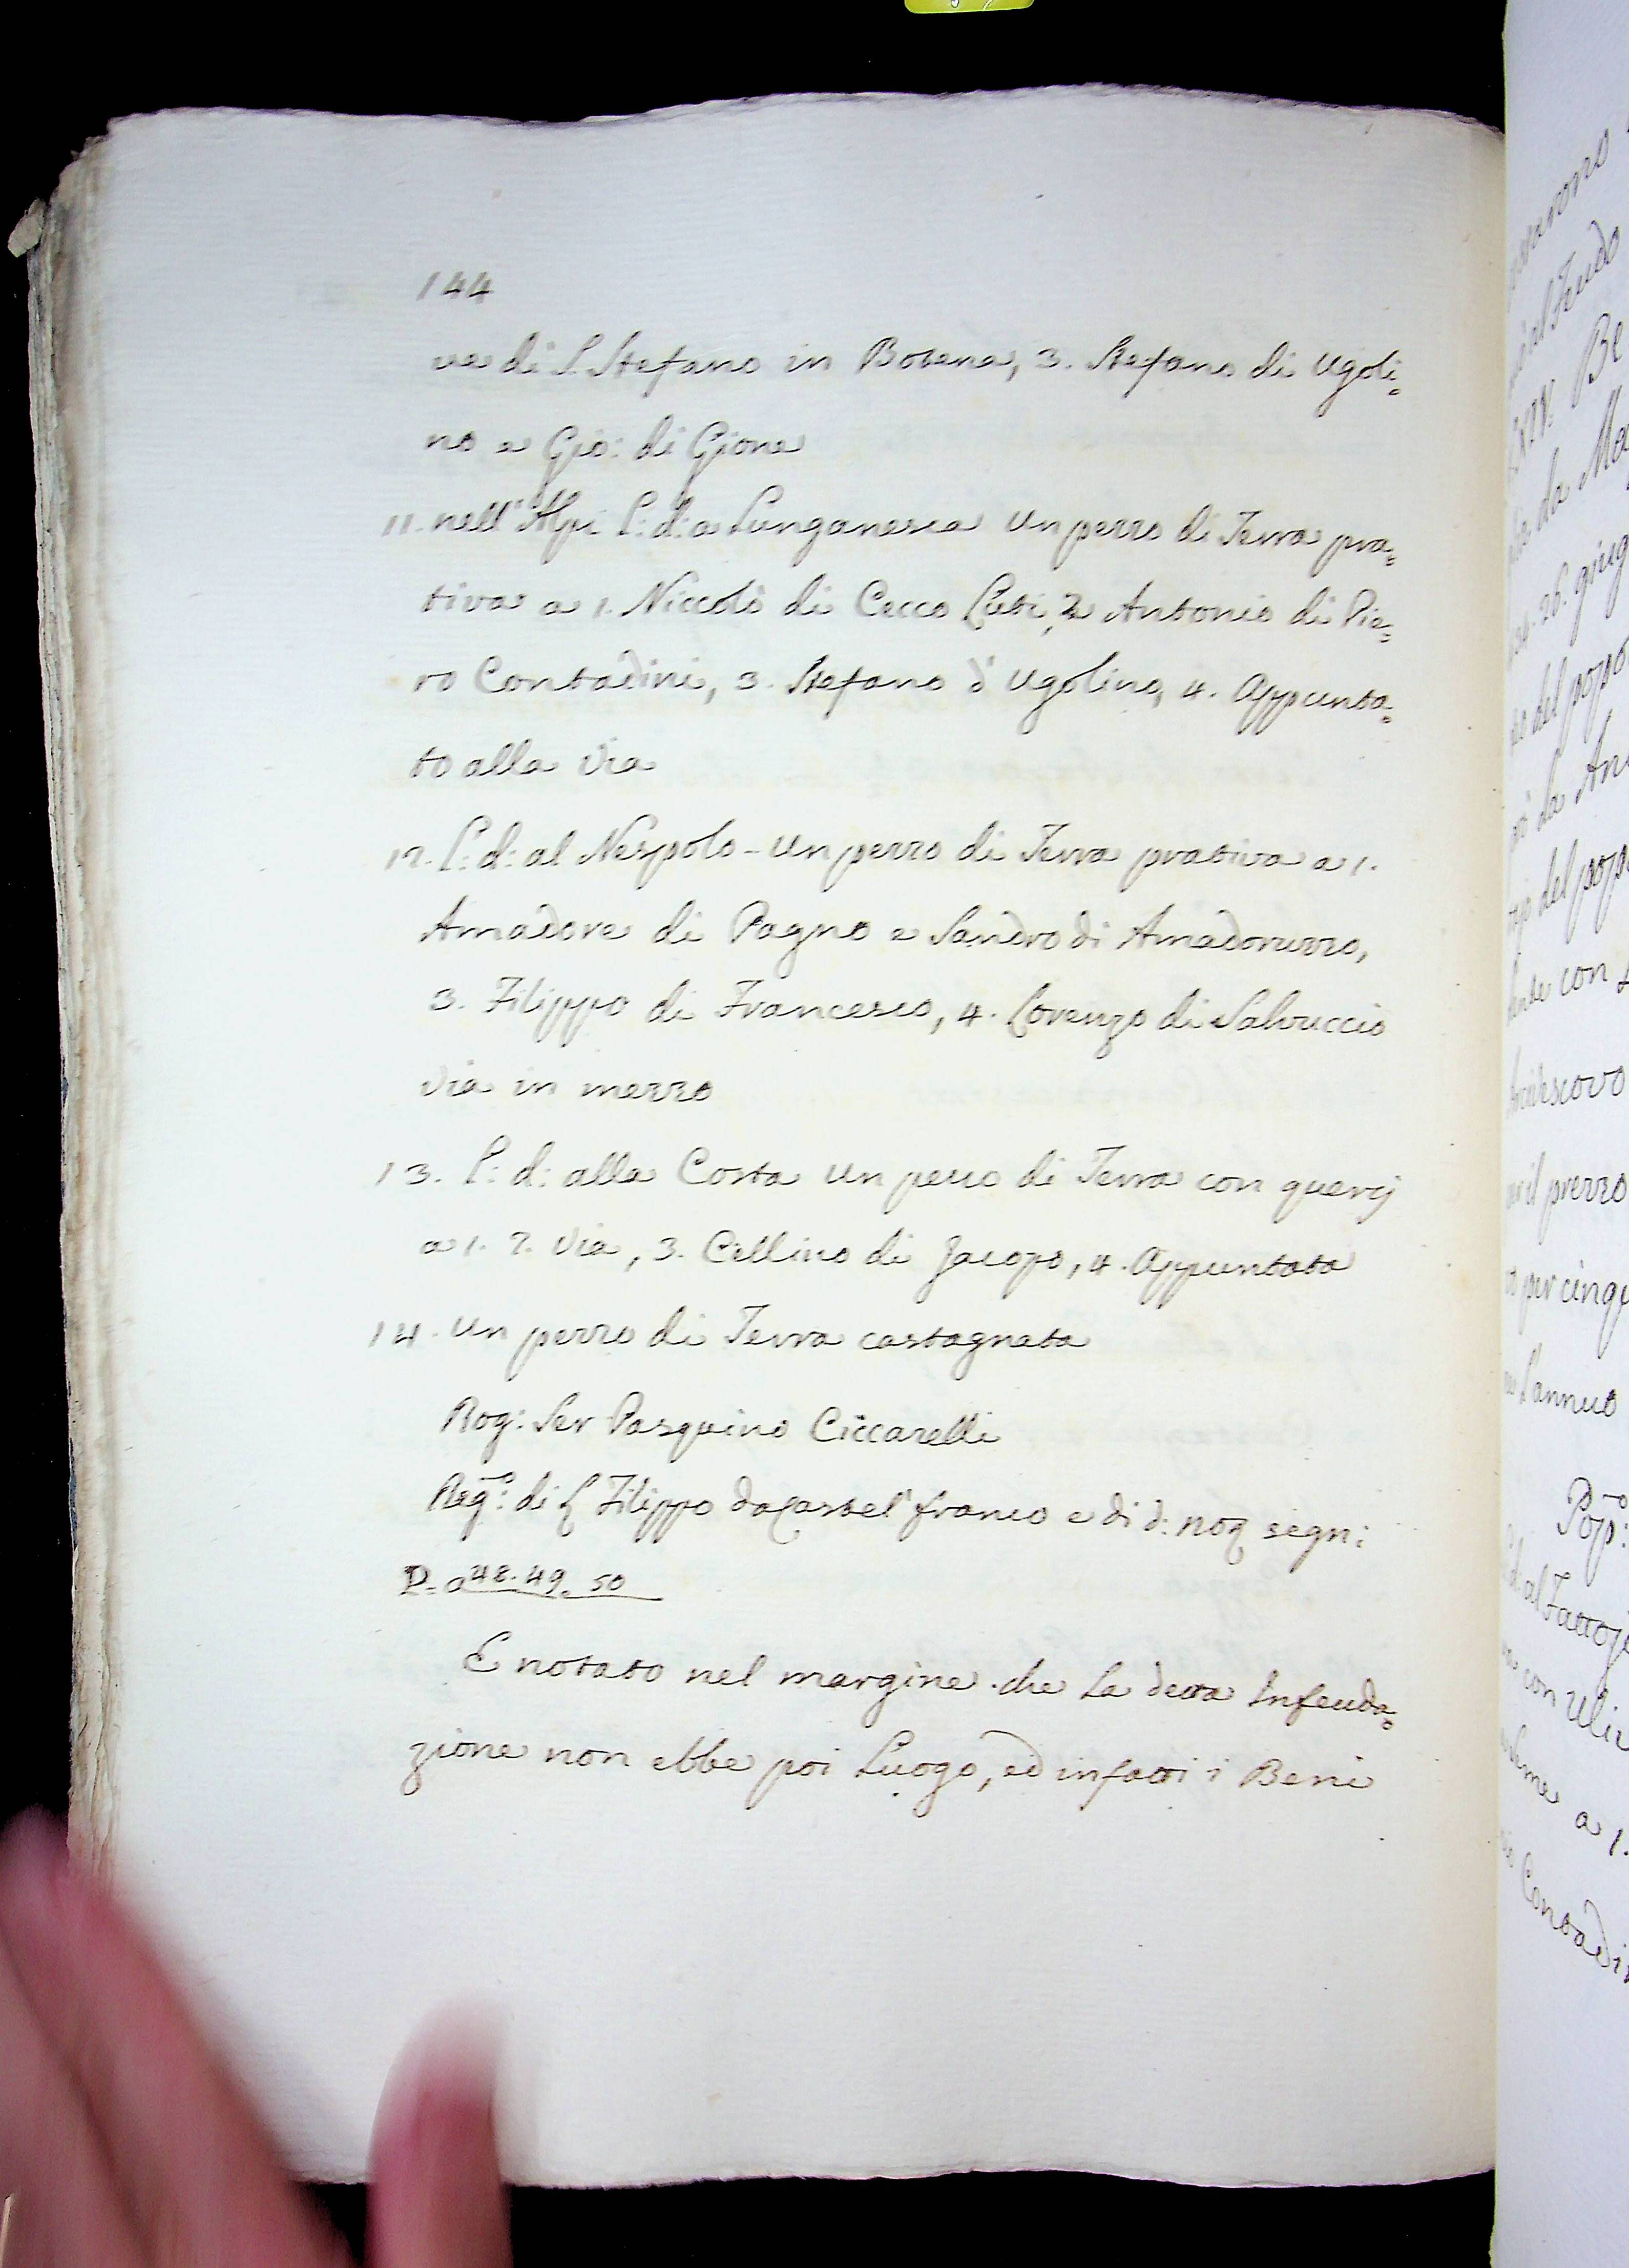 144
ve di S. Stefano in Botena, 3. Stefano di Ugoli=
no e Gio: di Gione
11. nell'Alpi l: d: a Lunganesca un pezzo di Terra pra=
tiva a 1. Niccolò di Cecco Luti, 2 Antonio di Pie=
ro Contadini, 3. Stefano d'Ugolino, 4. Appunta=
to alla Via
12. l: d: al Nespolo - un pezzo di Terra prativa a 1.
Amadore di Pagno e Sandro di Amadoruzzo,
3. Filippo di Francesco, 4. Lorenzo di Salvuccio
via in mezzo
13. l: d: alla Costa un pezzo di Terra con quercj
a 1. 2. Via, 3. Cellino di Jacopo, 4. Appuntata
14. un pezzo di Terra castagnata
Rog: Ser Pasquino Ciccarelli
Reg.ro: di Filippo da Castel'franco e di d: segn:
48. 49. 50
E notato nel margine che la detta Infeuda=
zione non ebbe poi Luogo, ed infatti i Beni
al Feudo
Be
da
26. giug
del
da
del
con
il prezzo
per cinqu
L'annuo
Pop:
al
con
a 1.
Contadi